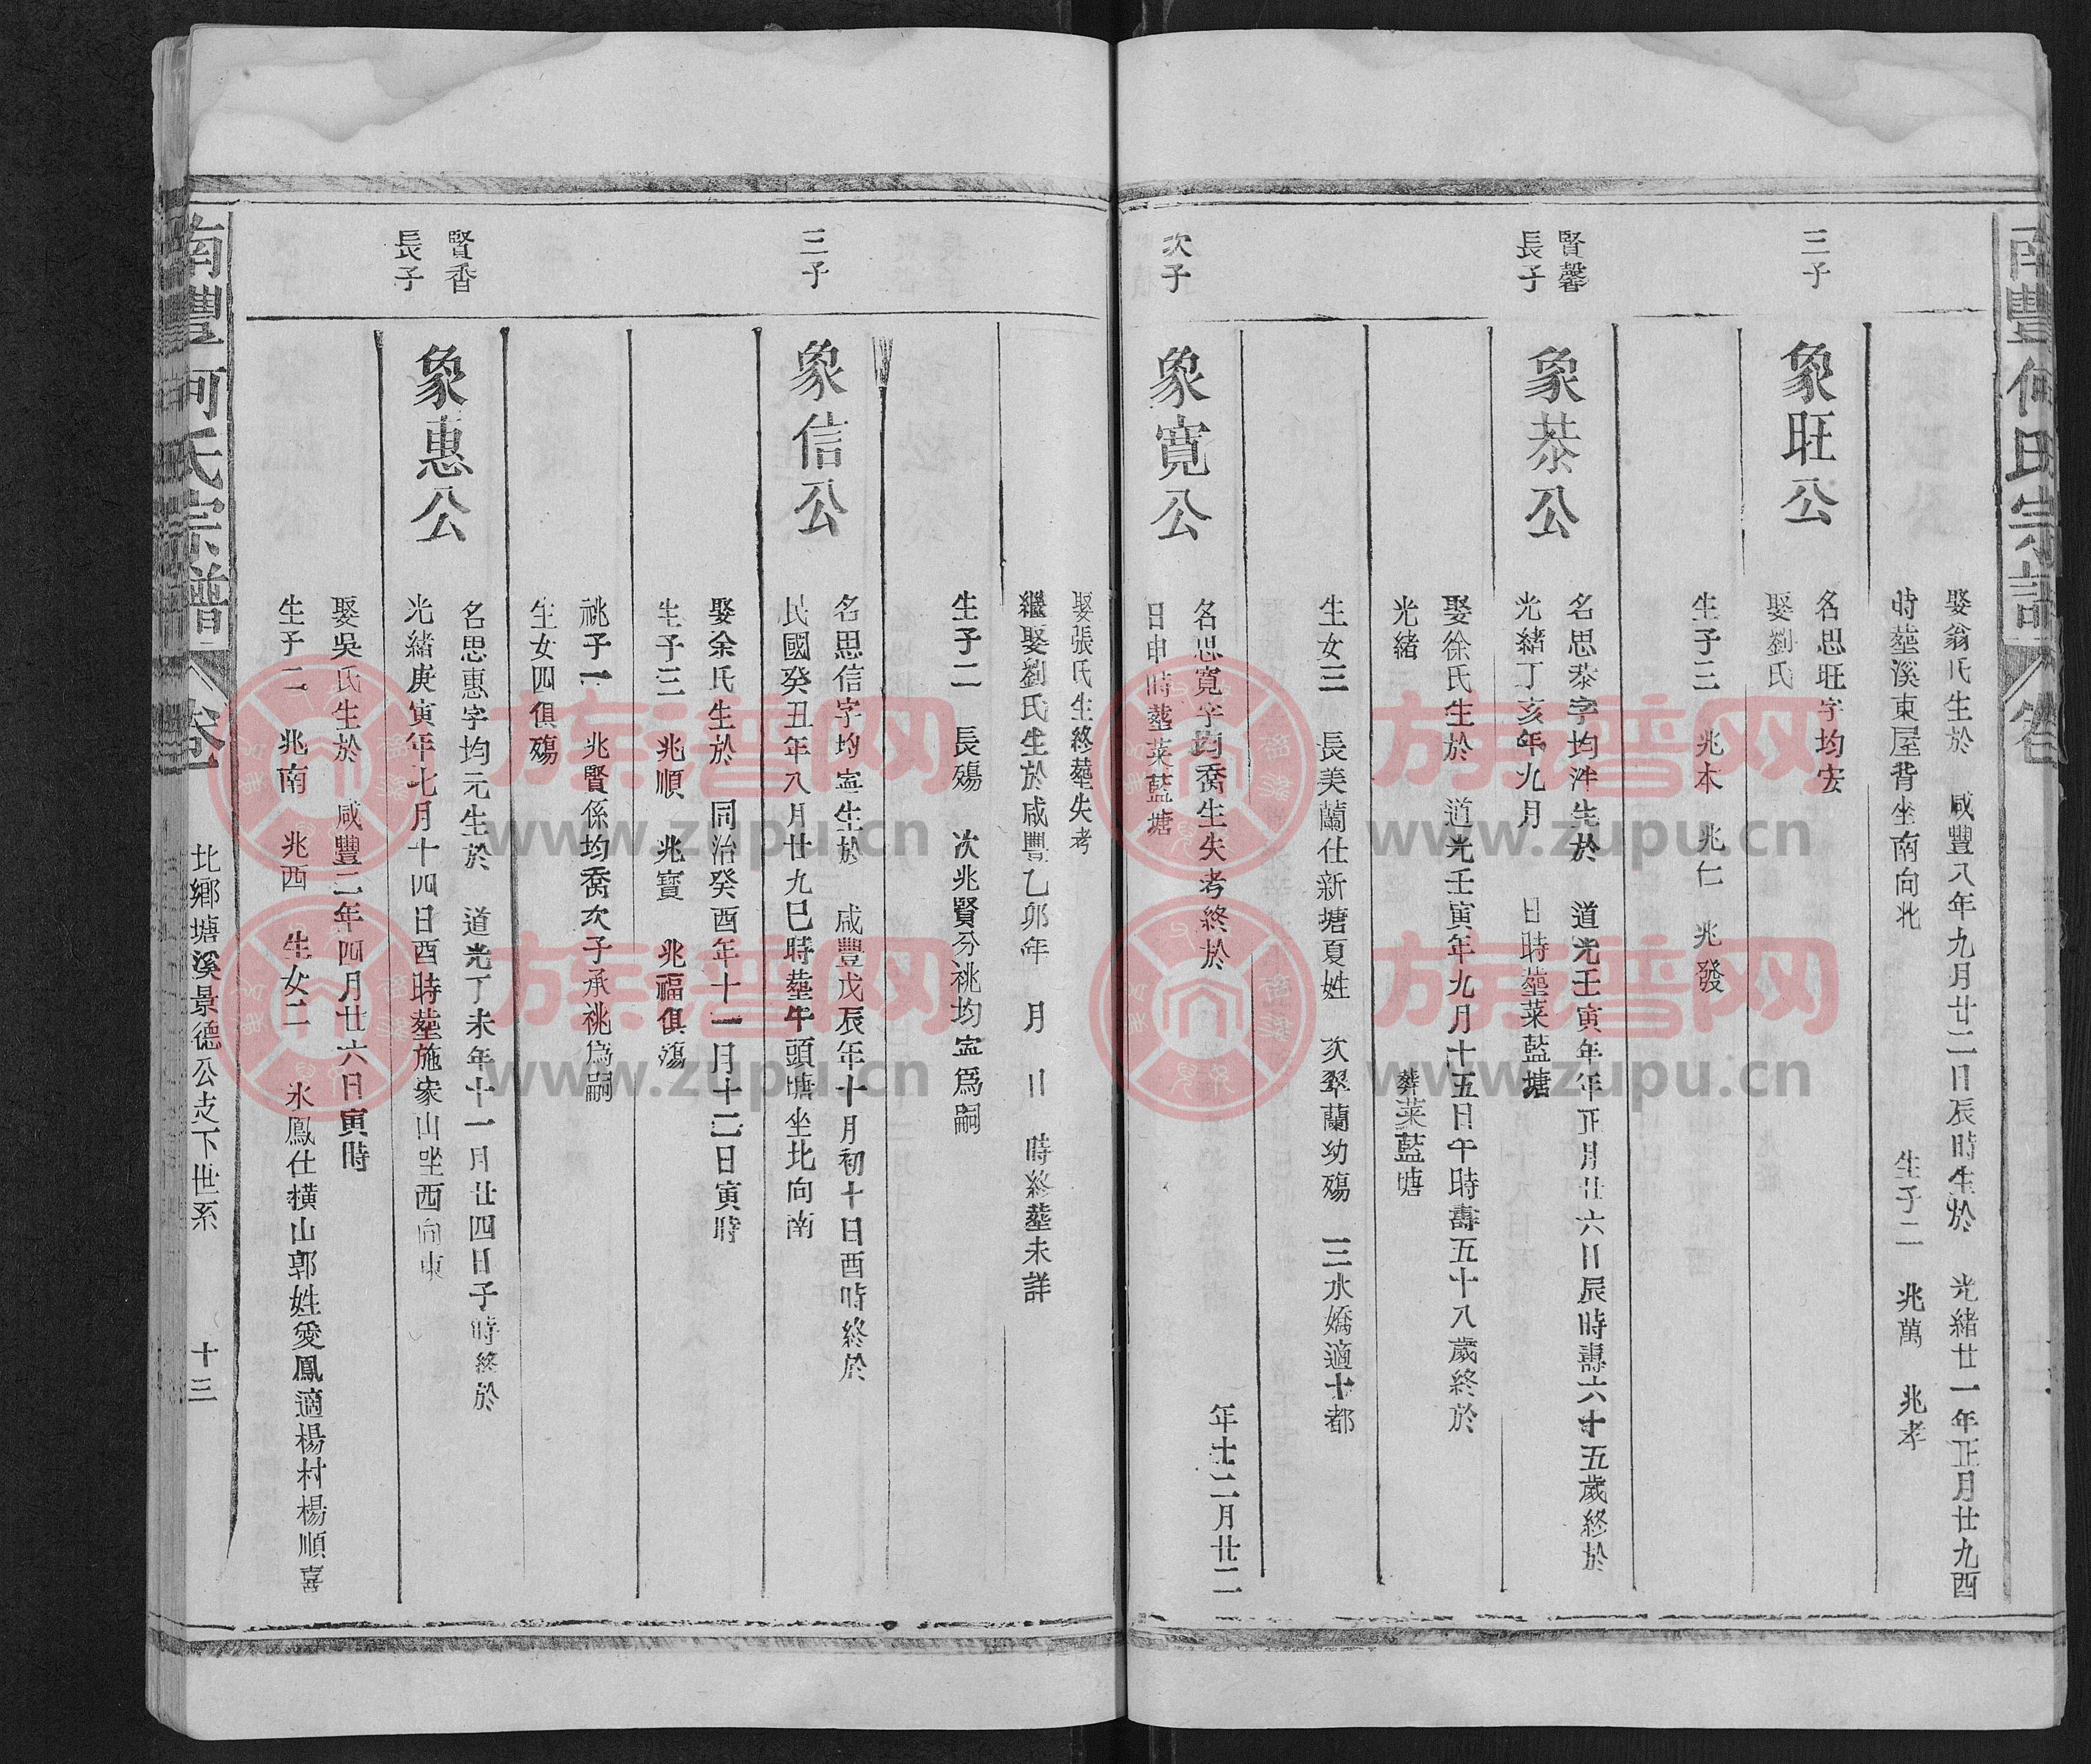 南豐何氏宗譜
娶翁氏生於 咸豐八年九月廿二日辰時生於 光緒廿一年正月廿九酉
時塟溪東屋背坐南向北 生子二 兆萬 兆孝
三子
象旺公
名思旺字均安
娶劉氏
生子三 兆本 兆仁 兆發
賢馨
長子
象恭公
名思恭字均泮生於 道光壬寅年正月廿六日辰時壽六十五歲終於
光緒丁亥年九月 日時塟菜藍塘
娶徐氏生於 道光壬寅年九月十五日午時壽五十八歲終於
光緒 葬菜藍塘
生女三 長美蘭仕新塘夏姓 次翠蘭幼殤 三水嬌適十都
次子
象寬公
名思寬字均喬生失考終於 年十二月廿二
日申時塟菜藍塘
娶張氏生終塟失考
繼娶劉氏生於咸豐乙卯年 月 日 時終塟未詳
生子二 長殤 次兆賢分祧均寍爲嗣
三子
象信公
名思信字均寍生於 咸豐戊辰年十月初十日酉時終於
民國癸丑年八月廿九巳時塟牛頭塘坐北向南
娶余氏生於 同治癸酉年十一月十二日寅時
生子三 兆順 兆寶 兆福俱殤
祧子一 兆賢係均喬次子承祧爲嗣
生女四俱殤
賢香
長子
象惠公
名思惠字均元生於 道光丁未年十一月廿四日子時終於
光緒庚寅年七月十四日酉時塟施家山坐西向東
娶吳氏生於 咸豐二年四月廿六日寅時
生子二 兆南 兆西 生女二 氷鳳仕橫山郭姓愛鳳適楊村楊順喜
南豐何氏宗譜
卷一
北鄉塘溪景德公支下世系
十三
族譜网
www.zupu.cn
族譜网
www.zupu.cn
族譜网
www.zupu.cn
族譜网
www.zupu.cn